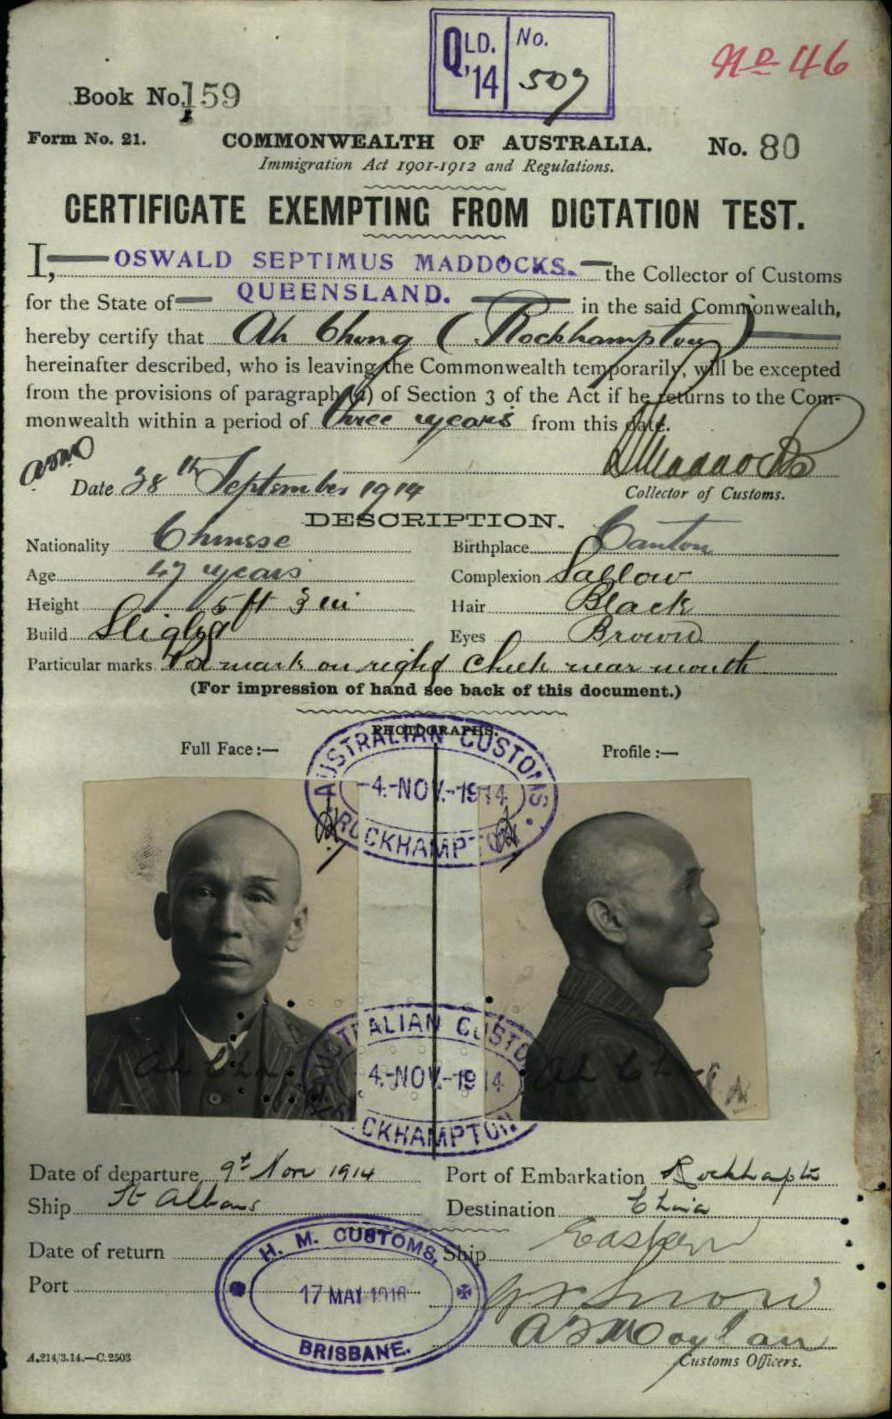 QLD. '14 No. 507
No 46
Book No. 159
Form No. 21.
COMMONWEALTH OF AUSTRALIA.
No. 80
Immigration Act 1901-1912 and Regulations.
CERTIFICATE EXEMPTING FROM DICTATION TEST.
I, OSWALD SEPTIMUS MADDOCKS. the Collector of Customs
for the State of QUEENSLAND. in the said Commonwealth,
hereby certify that Ah Chong (Rockhampton)
hereinafter described, who is leaving the Commonwealth temporarily, will be excepted
from the provisions of paragraph (a) of Section 3 of the Act if he returns to the Com-
monwealth within a period of three years from this date.
Date 28th September 1914
Collector of Customs.
DESCRIPTION.
Nationality Chinese
Birthplace Canton
Age 47 years
Complexion Sallow
Height 5 ft 3 in
Hair Black
Build Slight
Eyes Brown
Particular marks mark on right cheek near mouth
(For impression of hand see back of this document.)
PHOTOGRAPHS.
Full Face :—
Profile :—
AUSTRALIAN CUSTOMS
4-NOV.-1914
ROCKHAMPTON
AUSTRALIAN CUSTOMS
4-NOV.-1914
ROCKHAMPTON
Ah Cho
Ah Ch
Date of departure 9th Nov 1914
Port of Embarkation
Ship St Albans
Destination China
Date of return
Ship Eastern
Port
H. M. CUSTOMS,
17 MAY 1916
BRISBANE.
A.214/3.14.—C.2503
Customs Officers.